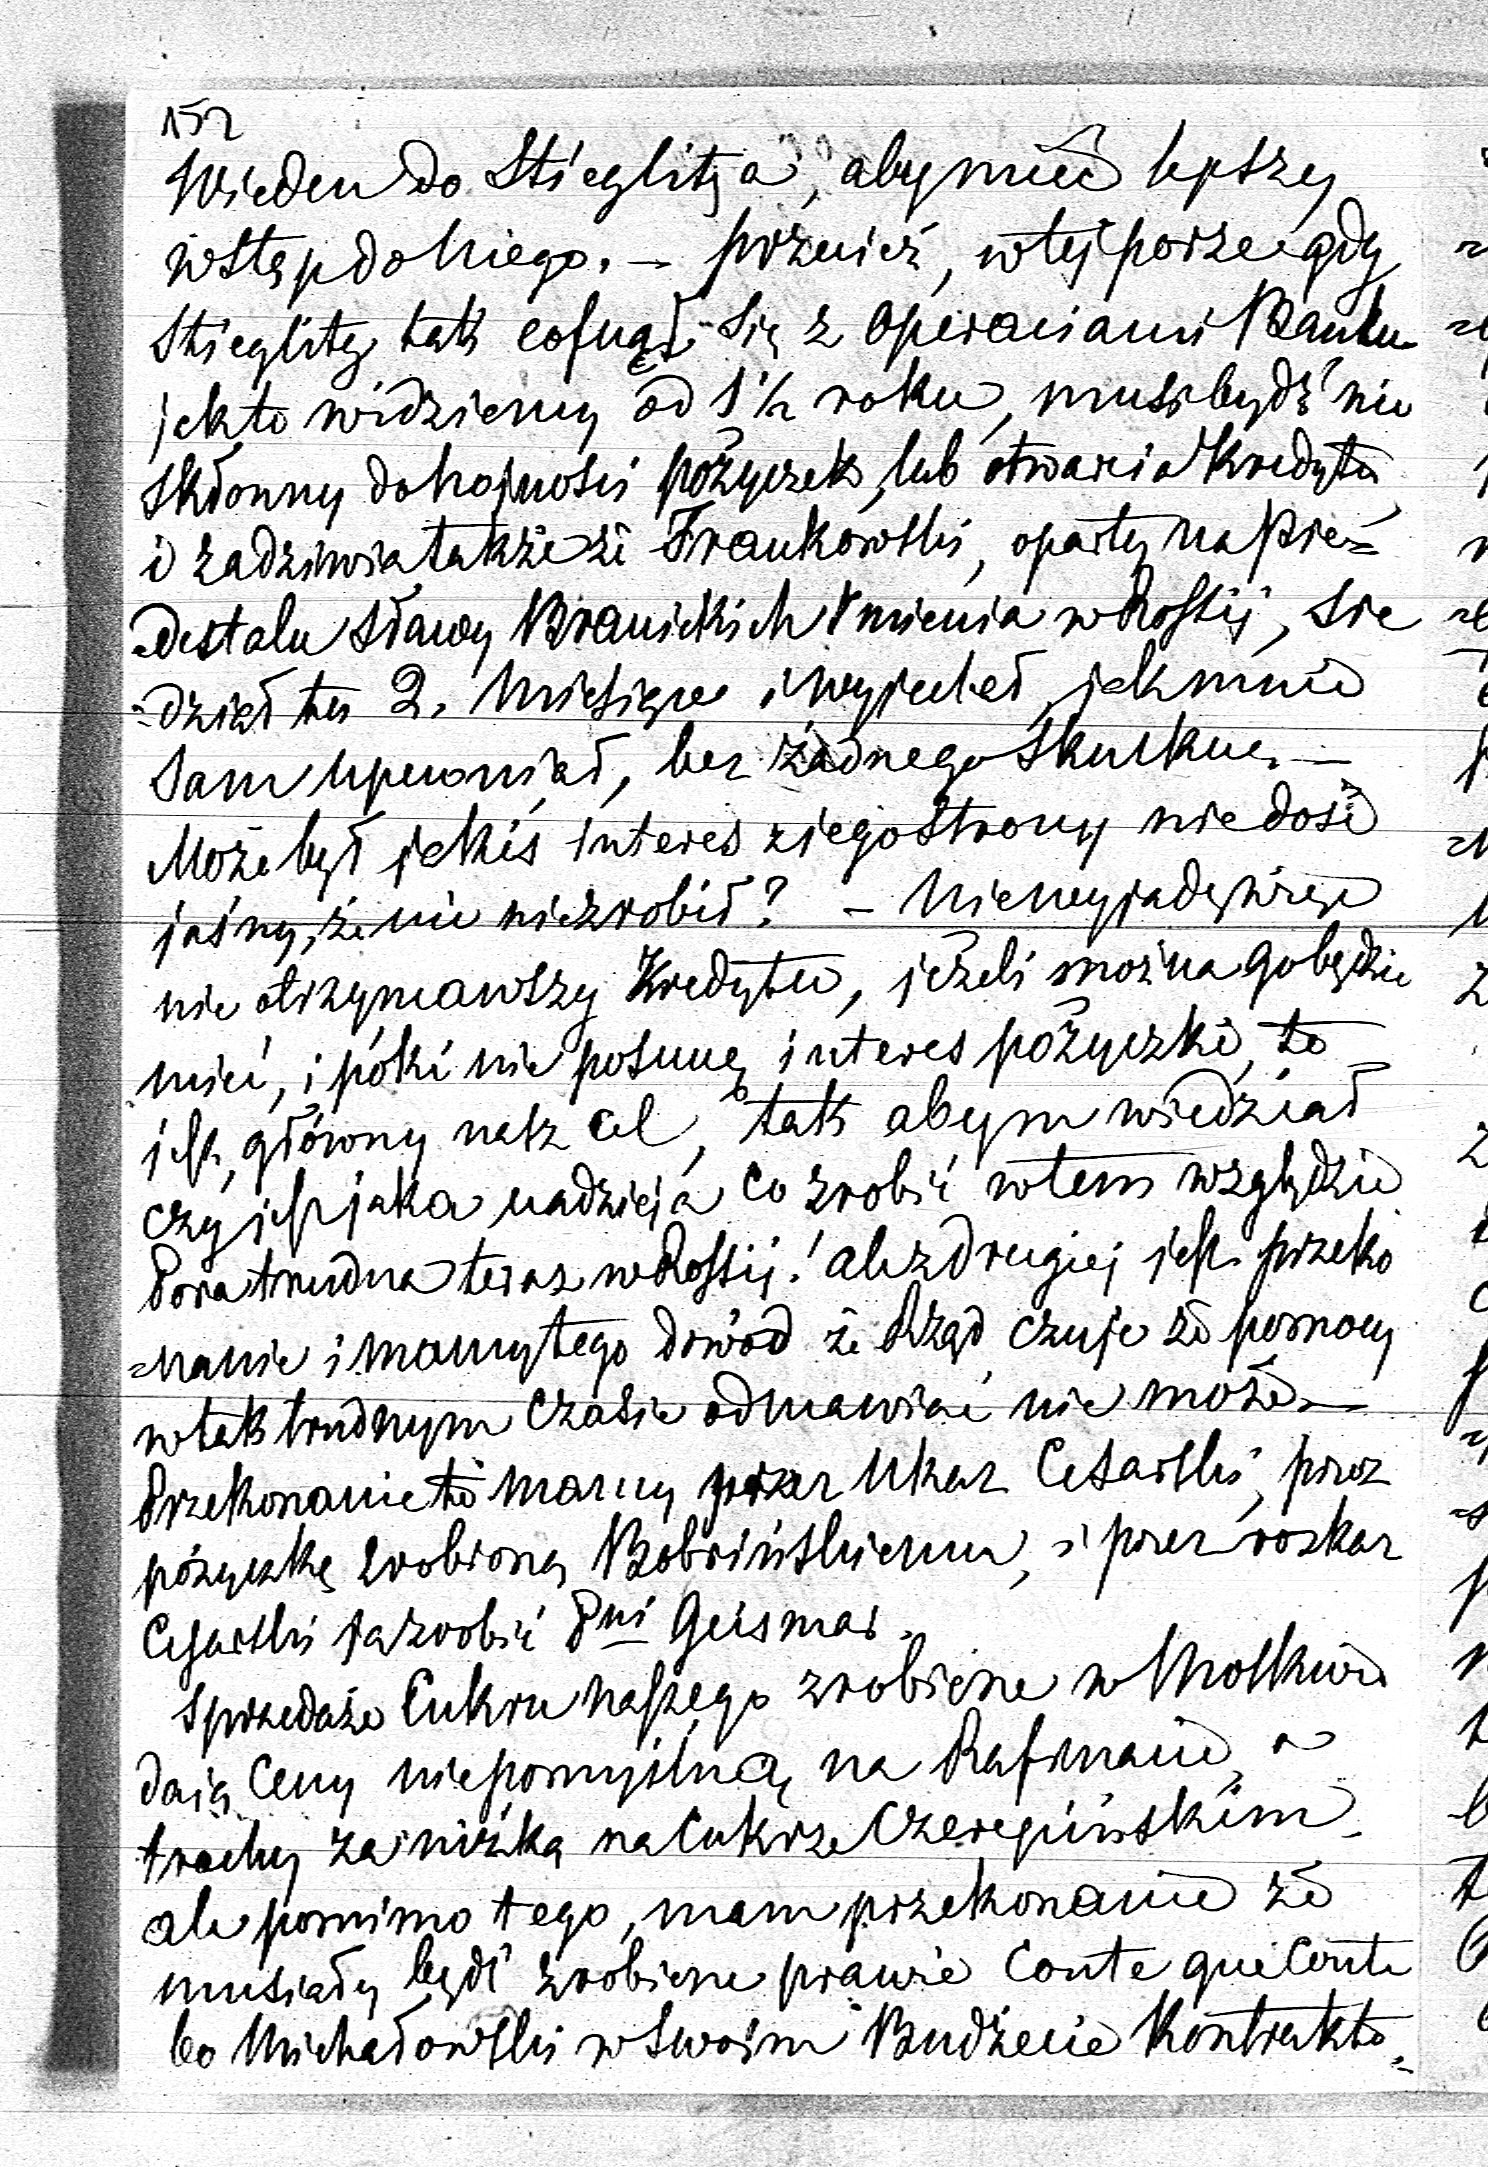 152
Wieden do Stieglitza, aby mieć lepszy
wstęp do niego. – przecież, w tej porze gdy
Stieglitz tak cofnął się z operaciami Banku
jak to widziemy od 1½ roku, musi bydź nie
skłonny do hojności pożyczek, lub otwarcia Kredytu
i zadziwia także że Frankowski, oparty na pie=
=destalu sławy Branickich Imienia w Rossij, sie
=dział tu 2. Miesiące i wyjechał, jak mnie
sam upewniał, bez żadnego skutku. –
Może był jakiś interes z jego strony nie dość
jasny, że nic nie zrobił? – Nie wyjadę więc
nie otrzymawszy Kredytu, jeżeli można go będzie
mieć, i póki nie posunę interes pożyczki, to
jest, główny nasz cel, tak abym wiedział
czy jest jaka nadzieja co zrobić w tem względzie
Pora trudna teraz w Rossij! ale z drugiej jest przeko
=nanie i mamy tego dowód że Rząd czuje że pomocy
w tak trudnym czasie odmawiać nie może –
Przekonanie to mamy przez Ukaz Cesarski, przez
pożyczkę zrobioną Bobrińskiemu, i przez rozkaz
Cesarski zrobić Pni Geismar.
Sprzedaże Cukru naszego zrobione w Moskwie
dają Ceny niepomyślną na Rafinacie, a
trochę zaniżką na Cukrze Czerepińskim.
ale pomimo tego, mam przekonanie że
musiały bydź zrobione prawie Coute que Coute
bo Michałowski w swoim Budżecie Kontrakto=